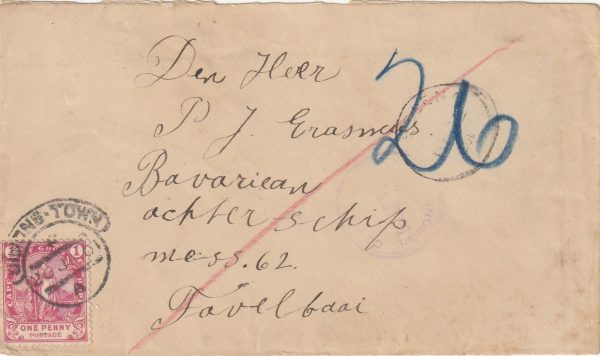 Den Heer
P J Erasmus.
Bavariean
achter schip
mess. 62.
Tavelbaai
26
SIMONS-TOWN
1
ONE PENNY
POSTAGE